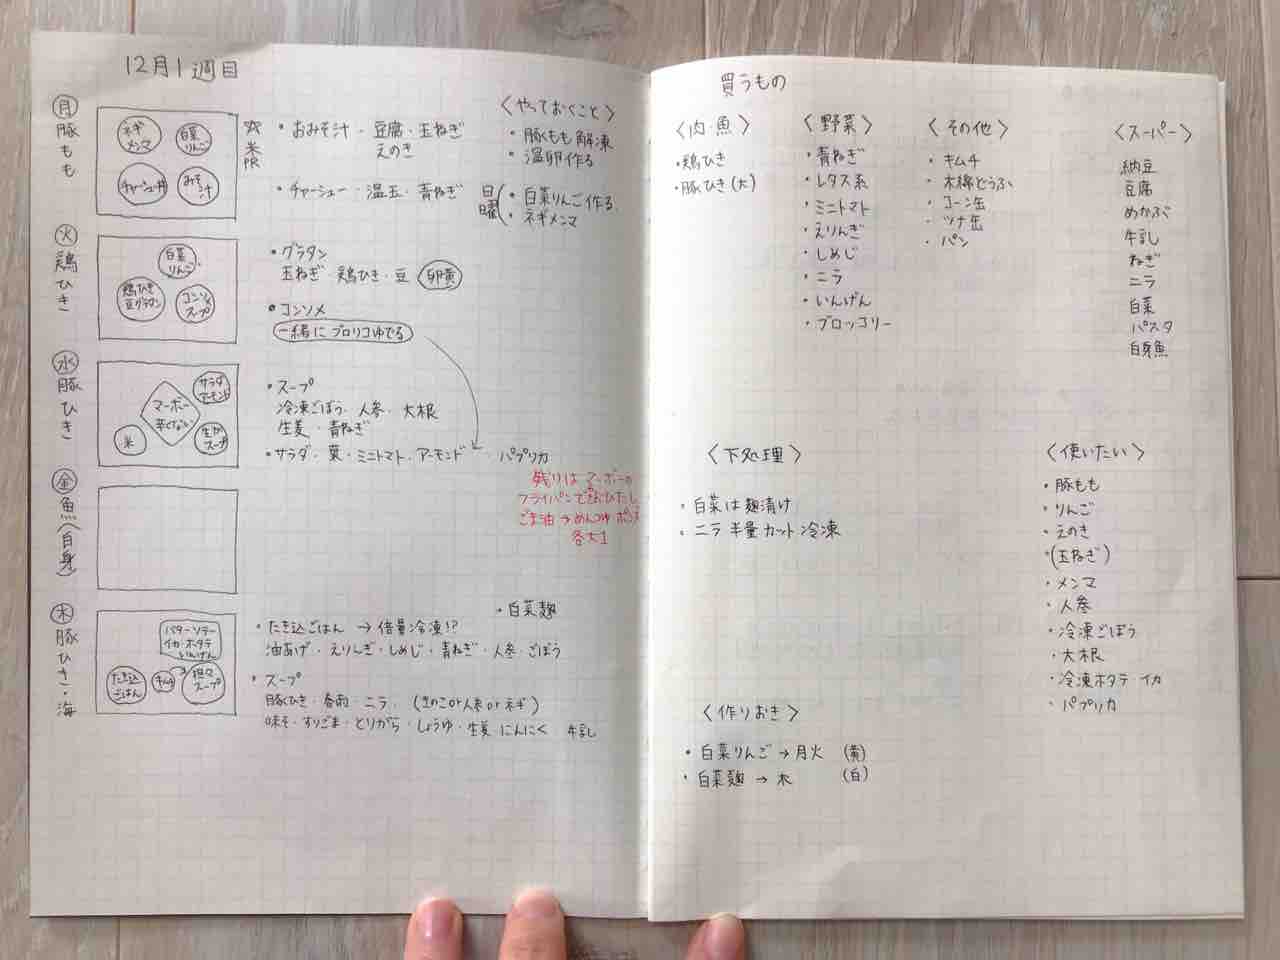 12月1週目
月 豚もも
ネギメンマ
白菜りんご
チャーシュー丼
みそ汁
米
・おみそ汁・豆腐・玉ねぎ
えのき
・チャーシュー・温玉・青ねぎ
〈やっておくこと〉
・豚もも解凍
・温卵作る
日曜
・白菜りんご作る
・ネギメンマ
火 鶏ひき
白菜りんご
鶏ひき豆グラタン
コンソメスープ
・グラタン
玉ねぎ・鶏ひき・豆 卵黄
・コンソメ
一緒にブロリコゆでる
水 豚ひき
サラダアーモンド
マーボー辛くない
米
生がスープ
・スープ
冷凍ごぼう・人参・大根
生姜・青ねぎ
・サラダ・葉・ミニトマト・アーモンド・パプリカ
残りはマーボーの
フライパンでおひたし
ごま油→めんつゆ ポン
各大1
金 魚(白身)
木 豚ひき・海
バターソテー
イカ・ホタテ
いんげん
たき込ごはん
キムチ
坦々スープ
・白菜麹
・たき込ごはん → 倍量冷凍!?
油あげ・えりんぎ・しめじ・青ねぎ・人参・ごぼう
・スープ
豚ひき・春雨・ニラ・(きのこor人参orネギ)
味そ・すりごま・とりがら・しょうゆ・生姜・にんにく 牛乳
買うもの
〈肉・魚〉
・鶏ひき
・豚ひき(大)
〈野菜〉
・青ねぎ
・レタス系
・ミニトマト
・えりんぎ
・しめじ
・ニラ
・いんげん
・ブロッコリー
〈その他〉
・キムチ
・木綿どうふ
・コーン缶
・ツナ缶
・パン
〈スーパー〉
納豆
豆腐
めかぶ
牛乳
ねぎ
ニラ
白菜
パスタ
白身魚
〈下処理〉
・白菜は麹漬け
・ニラ半量カット冷凍
〈使いたい〉
・豚もも
・りんご
・えのき
・(玉ねぎ)
・メンマ
・人参
・冷凍ごぼう
・大根
・冷凍ホタテ・イカ
・パプリカ
〈作りおき〉
・白菜りんご→月火 (黄)
・白菜麹→木 (白)